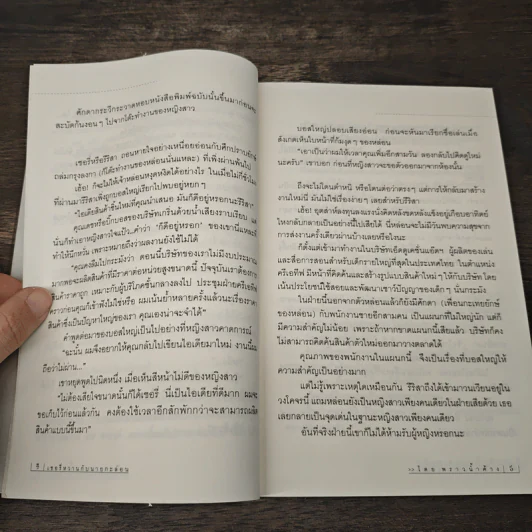 ศักดากระวีกระวาดหอบหนังสือพิมพ์ฉบับนั้นขึ้นมาก่อนจะ
สะบัดก้นงอนๆ ไปจากโต๊ะทำงานของหญิงสาว
เชอรีหรือริริสา ถอนหายใจอย่างเหนื่อยอ่อนกับศึก
ถล่มกรุงลงกา (ก็โต๊ะทำงานของหล่อนนั่นแหละ) ที่เพิ่งผ่านพ้นไป
เฮ้อ! ก็จะไม่ให้เจ้าหล่อนหงุดหงิดได้อย่างไร ในเมื่อไม่กี่ชั่วโมง
ที่ผ่านมาริริสาเพิ่งถูกบอสใหญ่เรียกไปพบอยู่หยกๆ
"ไอเดียสินค้าชิ้นใหม่ที่คุณนำเสนอ มันก็ดีอยู่หรอกนะริริสา"
คุณเดชหรือบิ๊กบอสของบริษัทเกริ่นด้วยน้ำเสียงราบเรียบ แต่
นั่นก็ทำเอาหญิงสาวใจแป้ว..คำว่า 'ก็ดีอยู่หรอก' ของเขานี่แหละที่
ทำให้นึกหวั่น เพราะหมายถึงว่าผลงานยังใช้ไม่ได้
"คุณคงลืมไปกระมังว่า ตอนนี้บริษัทของเราไม่มีงบประมาณ
มากพอจะผลิตสินค้าที่มีราคาต่อหน่วยสูงขนาดนี้ ปัจจุบันเราต้องการ
สินค้าราคาถูก เหมาะกับผู้บริโภคชั้นกลางลงไป ประชุมฝ่ายครีเอทีฟ
คราวก่อนคุณก็เข้าฟังไม่ใช่หรือ ผมเน้นย้ำหลายครั้งแล้วนะเรื่องราคา
สินค้าซึ่งเป็นปัญหาใหญ่ของเรา คุณน่าจะจำได้"
คำพูดต่อมาของบอสใหญ่เป็นไปอย่างที่หญิงสาวคาดการณ์
"ฉะนั้น ผมจึงอยากให้คุณกลับไปเขียนไอเดียมาใหม่ งานนี้ผม
ถือว่าไม่ผ่าน..."
เขาหยุดพูดไปนิดหนึ่ง เมื่อเห็นสีหน้าไม่ดีของหญิงสาว
"ไม่ต้องเสียใจขนาดนั้นก็ได้เชอรี่ นี่เป็นไอเดียที่ดีมาก ผมจะ
ขอเก็บไว้ก่อนแล้วกัน คงต้องใช้เวลาอีกสักพักกว่าจะสามารถผลิต
สินค้าแบบนี้ขึ้นมา"
| เชอรี่หวานกับนายกะล่อน
บอสใหญ่ปลอบเสียงอ่อน ก่อนจะหันมาเรียกชื่อเล่นเมื่อ
สังเกตเห็นใบหน้าที่ก้มงุดๆ ของหล่อน
"เอาเป็นว่าผมให้เวลาคุณเพิ่มอีกสามวัน ลองกลับไปคิดดูใหม่
นะครับ" เขาบอก ก่อนที่หญิงสาวจะขอตัวออกมาจากห้องนั้น
ถึงจะไม่โดนตำหนิ หรือโดนต่อว่าตรงๆ แต่การให้กลับมาสร้าง
งานใหม่นี่ มันไม่ใช่เรื่องง่ายๆ เลยสำหรับริริสา
เฮ้อ! อุตส่าห์ลงทุนลงแรงนั่งคิดหลังขดหลังแข็งอยู่เกือบอาทิตย์
ไหงกลับกลายเป็นอย่างนี้ไปเสียได้ นี่หล่อนจะไม่มีวันพบความสุขจาก
การส่งงานครั้งเดียวผ่านบ้างเลยหรือไงนะ
ก็ตั้งแต่เข้ามาทำงานในบริษัทเอ็ดดูเคชั่นแอ๊ดฯ ผู้ผลิตของเล่น
และสื่อการสอนสำหรับเด็กรายใหญ่ที่สุดในประเทศไทย ในตำแหน่ง
ครีเอทีฟ มีหน้าที่คิดค้นและสร้างรูปแบบสินค้าใหม่ๆ ให้กับบริษัท โดย
เน้นประโยชน์ใช้สอยและพัฒนาเชาวน์ปัญญาของเด็กๆ นั่นกระมัง
ในฝ่ายนี้นอกจากตัวหล่อนแล้วก็ยังมีศักดา (เพื่อนกะเทยยักษ์
ของหล่อน) กับพนักงานชายอีกสามคน เป็นแผนกที่ไม่ใหญ่นัก แต่ก็
มีความสำคัญไม่น้อย เพราะถ้าหากขาดแผนกนี้เสียแล้ว บริษัทก็คง
ไม่สามารถคิดค้นสินค้าตัวใหม่ออกมาวางตลาดได้
คุณภาพของพนักงานในแผนกนี้ จึงเป็นเรื่องที่บอสใหญ่ให้
ความสำคัญเป็นอย่างมาก
แต่ไม่รู้เพราะเหตุใดเหมือนกัน ริริสาถึงได้เข้ามาวนเวียนอยู่ใน
วงโคจรนี้ แถมหล่อนยังเป็นหญิงสาวเพียงคนเดียวในฝ่ายเสียด้วย เธอ
เลยกลายเป็นจุดเด่นในฐานะหญิงสาวเพียงคนเดียว
อันที่จริงฝ่ายนี้เขาก็ไม่ได้ห้ามรับผู้หญิงหรอกนะ
>> โดย พราวน้ำค้าง | 5